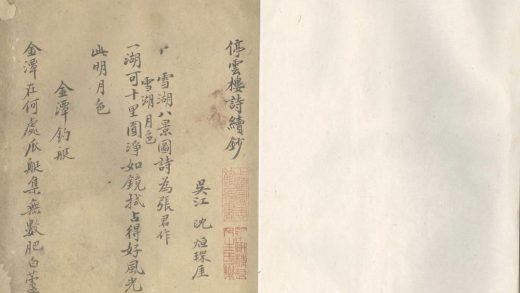 停雲樓詩續鈔
吳江 沈烜琛厓
雪湖八景圖詩為張君作
雪湖月色
一湖可十里圓淨如鏡拭占得好風光
此明月色
金潭釣艇
金潭在何處瓜艇集無數肥白蘆